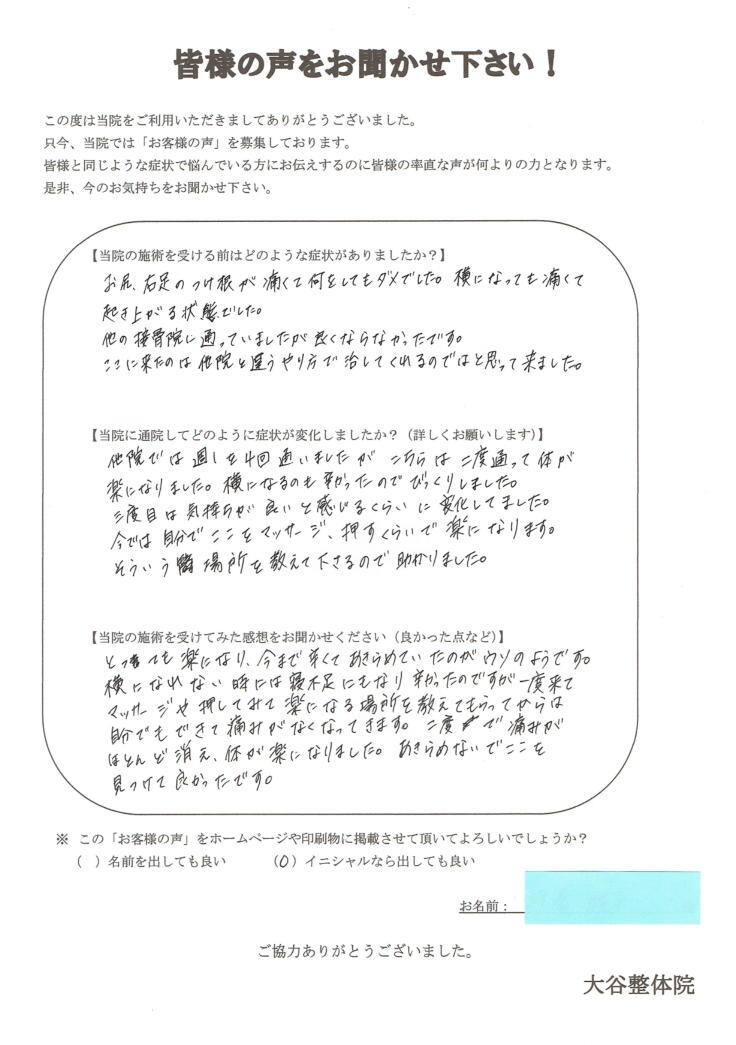 皆様の声をお聞かせ下さい！
この度は当院をご利用いただきましてありがとうございました。
只今、当院では「お客様の声」を募集しております。
皆様と同じような症状で悩んでいる方にお伝えするのに皆様の率直な声が何よりの力となります。
是非、今のお気持ちをお聞かせ下さい。
【当院の施術を受ける前はどのような症状がありましたか？】
お尻、右足のつけ根が痛くて何をしてもダメでした。横になっても痛くて
起き上がる状態でした。
他の接骨院に通っていましたが良くならなかったです。
ここに来たのは他院と違うやり方で治してくれるのではと思って来ました。
【当院に通院してどのように症状が変化しましたか？（詳しくお願いします）】
他院では週1を4回通いましたがこちらは二度通って体が
楽になりました。横になるのも辛かったのでびっくりしました。
三度目は気持ちが良いと感じるくらいに変化してました。
今では自分でここをマッサージ、押すくらいで楽になります。
そういう場所を教えて下さるので助かりました。
【当院の施術を受けてみた感想をお聞かせください（良かった点など）】
とっても楽になり、今まで辛くてあきらめていたのがウソのようです。
横になれない時には寝不足にもなり辛かったのですが一度来て
マッサージや押してみて楽になる場所を教えてもらってからは
自分でもできて痛みがなくなってきます。二度で痛みが
ほとんど消え、体が楽になりました。あきらめないでここを
見つけて良かったです。
※ この「お客様の声」をホームページや印刷物に掲載させて頂いてよろしいでしょうか？
（ ）名前を出しても良い （○）イニシャルなら出しても良い
お名前：
ご協力ありがとうございました。
大谷整体院